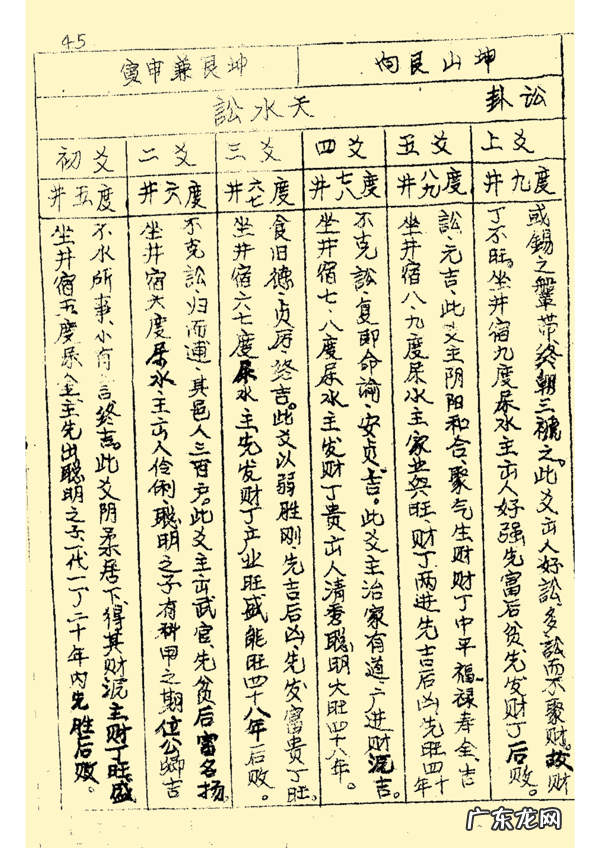 45
坤山艮向
坤艮兼申寅
讼卦
天水訟
上爻
井九度
或錫之鞶带、终朝三褫之。此爻出人好訟、多訟而不聚财。故财
丁不旺。坐井宿九度尿水主出人好强先富后贫、先发财丁后败。
五爻
井八九度
訟、元吉、此爻主阴阳和合、聚气生财财丁中平福禄寿全、吉
坐井宿八、九度尿水主家业兴旺、财丁两进先吉后凶、先旺四十
四爻
井七八度
不克訟、复即命諭、安贞、吉。此爻主治家有道、广进财源吉。
坐井宿七、八度尿水主发财丁贵出人清秀聪明大旺四十八年。
三爻
井六七度
食旧德、贞厉、终吉。此爻以弱胜刚先吉后凶、先发富贵丁旺。
坐井宿六七度尿水主先发财丁产业旺盛能旺四十八年后败。
二爻
井六度
不克訟、归而逋、其邑人三百户。此爻主出武官、先贫后富名扬。
坐井宿六度尿水、主出人伶俐、聪明之子有科甲之期位公卿吉
初爻
井五度
不永所事、小有言终吉。此爻阴柔居下、得其财源、主财丁旺盛
坐井宿五度尿主先出聪明之子一代一丁二十年内先胜后败。
广东龙网